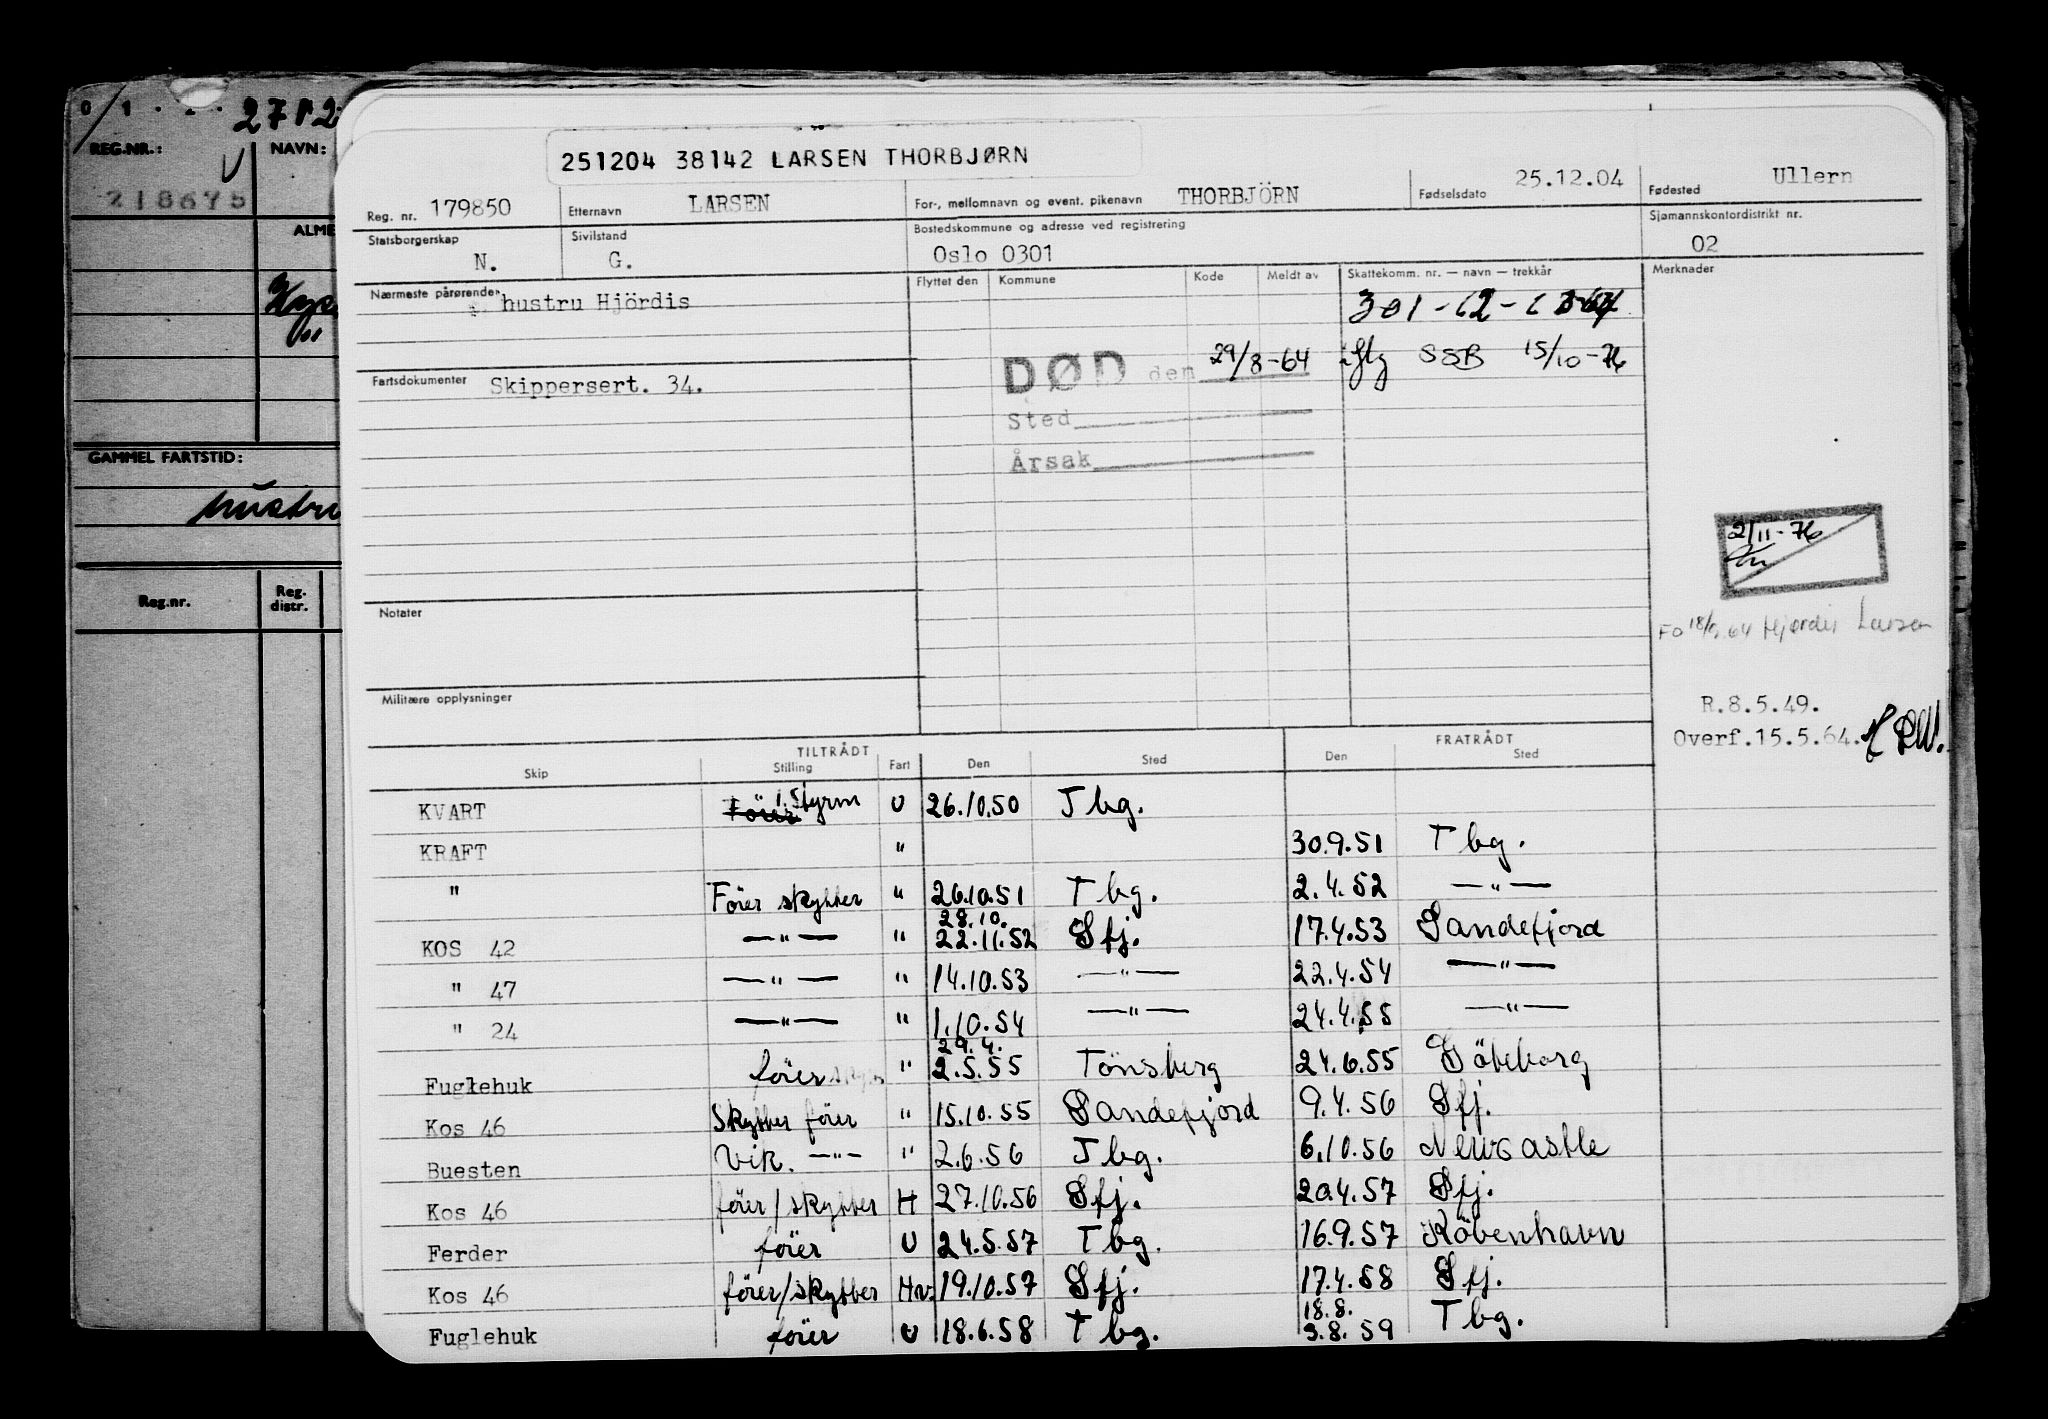 0 1
2712
REG.NR.: NAVN:
218675
ALME
GAMMEL FARTSTID:
hustru
Reg.nr. Reg. distr.
251204 38142 LARSEN THORBJØRN
Reg. nr. 179850 Etternavn LARSEN For-, mellomnavn og event. pikenavn THORBJÖRN Fødselsdato 25.12.04 Fødested Ullern
Statsborgerskap N. Sivilstand G. Bostedskommune og adresse ved registrering Oslo 0301 Sjømannskontordistrikt nr. 02
Nærmeste pårørende hustru Hjördis Flyttet den Kommune Kode Meldt av Skattekomm. nr. — navn — trekkår Merknader
301-62-
DØD den 29/8-64 iflg SSB 15/10-76
Fartsdokumenter Skippersert. 34.
Sted
Årsak
2/11-76
Notater
FO 18/9.64 Hjørdis Larsen
Militære opplysninger
R.8.5.49.
Overf.15.5.64.
TILTRÅDT FRATRÅDT
Skip Stilling Fart Den Sted Den Sted
KVART Förer 1. Styrm U 26.10.50 Tbg.
KRAFT " 30.9.51 Tbg.
" Förer skytter " 26.10.51 Tbg. 2.4.52 —"—
28.10.
KOS 42 —"— " 22.11.52 Sfj. 17.4.53 Sandefjord
" 47 —"— " 14.10.53 —"— 22.4.54 —"—
" 24 —"— " 1.10.54 —"— 24.4.55 —"—
29.4.
Fuglehuk förer " 2.5.55 Tönsberg 24.6.55 Göteborg
Kos 46 Skytter förer " 15.10.55 Sandefjord 9.4.56 Sfj.
Buesten Vik. —"— " 2.6.56 Tbg. 6.10.56 Newcastle
Kos 46 förer/skytter H 27.10.56 Sfj. 20.4.57 Sfj.
Ferder förer U 24.5.57 Tbg. 16.9.57 Köbenhavn
Kos 46 förer/skytter Hv. 19.10.57 Sfj. 17.4.58 Sfj.
18.8.
Fuglehuk förer U 18.6.58 Tbg. 3.8.59 Tbg.